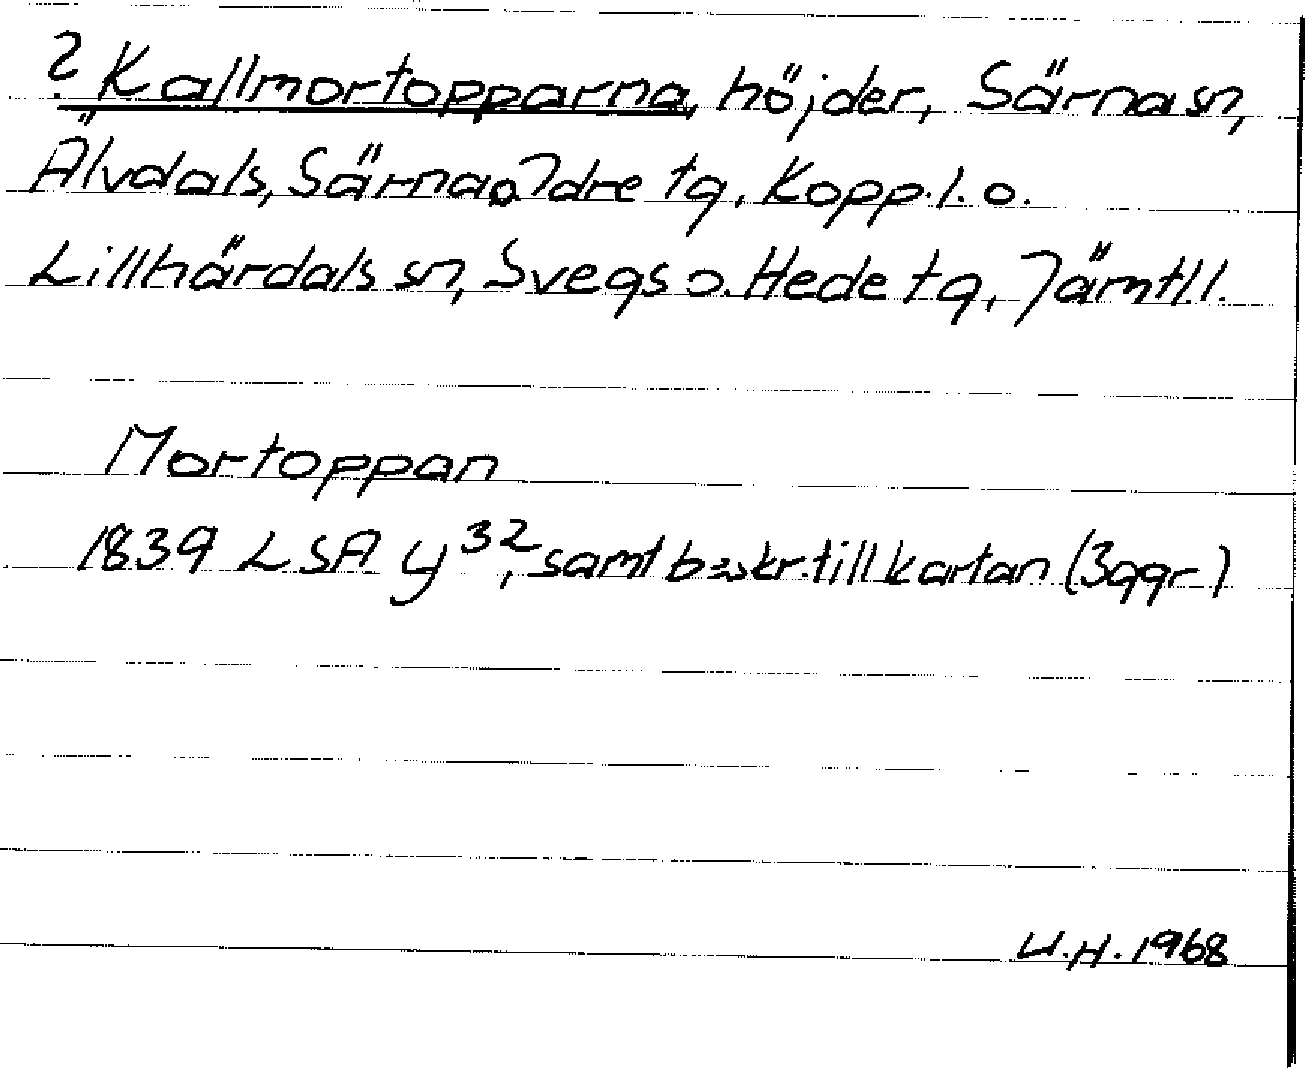 ? Kallmortopparna, höjder, Särna sn,
Älvdals, Särna o. Idre tg, Kopp. l. o.
Lillhärdals sn, Svegs o. Hede tg, Jämtl. l.
Mortoppan
1839 LSA y 32, samt beskr. till kartan (3 ggr)
U.H. 1968